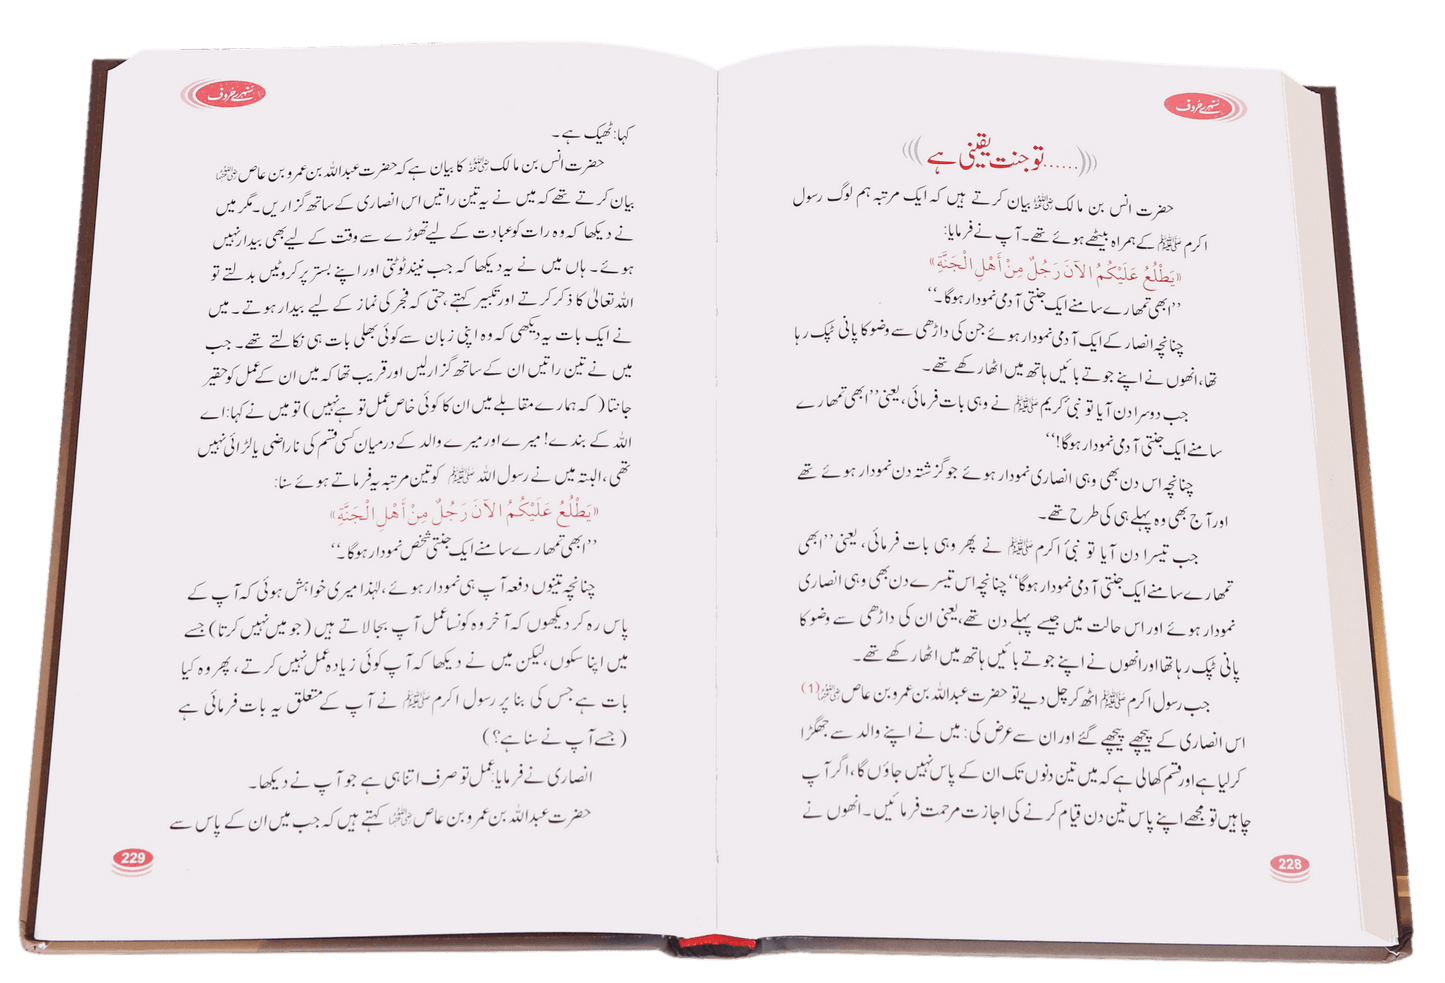 سنہرے حروف
......تو جنت یقینی ہے
حضرت انس بن مالک رضی اللہ عنہ بیان کرتے ہیں کہ ایک مرتبہ ہم لوگ رسول
اکرم ﷺ کے ہمراہ بیٹھے ہوئے تھے۔ آپ نے فرمایا:
«يَطْلُعُ عَلَيْكُمُ الآنَ رَجُلٌ مِنْ أَهْلِ الْجَنَّةِ»
’’ابھی تمھارے سامنے ایک جنتی آدمی نمودار ہوگا۔‘‘
چنانچہ انصار کے ایک آدمی نمودار ہوئے جن کی داڑھی سے وضو کا پانی ٹپک رہا
تھا، انھوں نے اپنے جوتے بائیں ہاتھ میں اٹھا رکھے تھے۔
جب دوسرا دن آیا تو نبی کریم ﷺ نے وہی بات فرمائی، یعنی ’’ابھی تمھارے
سامنے ایک جنتی آدمی نمودار ہوگا!‘‘
چنانچہ اس دن بھی وہی انصاری نمودار ہوئے جو گزشتہ دن نمودار ہوئے تھے
اور آج بھی وہ پہلے ہی کی طرح تھے۔
جب تیسرا دن آیا تو نبیٔ اکرم ﷺ نے پھر وہی بات فرمائی، یعنی ’’ابھی
تمھارے سامنے ایک جنتی آدمی نمودار ہوگا‘‘ چنانچہ اس تیسرے دن بھی وہی انصاری
نمودار ہوئے اور اس حالت میں جیسے پہلے دن تھے، یعنی ان کی داڑھی سے وضو کا
پانی ٹپک رہا تھا اور انھوں نے اپنے جوتے بائیں ہاتھ میں اٹھا رکھے تھے۔
جب رسول اکرم ﷺ اٹھ کر چل دیے تو حضرت عبداللہ بن عمرو بن عاص رضی اللہ عنہما (1)
اس انصاری کے پیچھے پیچھے گئے اور ان سے عرض کی: میں نے اپنے والد سے جھگڑا
کرلیا ہے اور قسم کھالی ہے کہ میں تین دنوں تک ان کے پاس نہیں جاؤں گا، اگر آپ
چاہیں تو مجھے اپنے پاس تین دن قیام کرنے کی اجازت مرحمت فرمائیں۔ انھوں نے
228
سنہرے حروف
کہا: ٹھیک ہے۔
حضرت انس بن مالک رضی اللہ عنہ کا بیان ہے کہ حضرت عبداللہ بن عمرو بن عاص رضی اللہ عنہما
بیان کرتے تھے کہ میں نے یہ تین راتیں اس انصاری کے ساتھ گزاریں۔ مگر میں
نے دیکھا کہ وہ رات کو عبادت کے لیے تھوڑے سے وقت کے لیے بھی بیدار نہیں
ہوئے۔ ہاں میں نے یہ دیکھا کہ جب نیند ٹوٹتی اور اپنے بستر پر کروٹیں بدلتے تو
اللہ تعالیٰ کا ذکر کرتے اور تکبیر کہتے، حتی کہ فجر کی نماز کے لیے بیدار ہوتے۔ میں
نے ایک بات یہ دیکھی کہ وہ اپنی زبان سے کوئی بھلی بات ہی نکالتے تھے۔ جب
میں نے تین راتیں ان کے ساتھ گزار لیں اور قریب تھا کہ میں ان کے عمل کو حقیر
جانتا (کہ ہمارے مقابلے میں ان کا کوئی خاص عمل تو ہے نہیں) تو میں نے کہا: اے
اللہ کے بندے! میرے اور میرے والد کے درمیان کسی قسم کی ناراضی یا لڑائی نہیں
تھی، البتہ میں نے رسول اللہ ﷺ کو تین مرتبہ یہ فرماتے ہوئے سنا:
«يَطْلُعُ عَلَيْكُمُ الآنَ رَجُلٌ مِنْ أَهْلِ الْجَنَّةِ»
’’ابھی تمھارے سامنے ایک جنتی شخص نمودار ہوگا۔‘‘
چنانچہ تینوں دفعہ آپ ہی نمودار ہوئے، لہٰذا میری خواہش ہوئی کہ آپ کے
پاس رہ کر دیکھوں کہ آخر وہ کونسا عمل آپ بجا لاتے ہیں (جو میں نہیں کرتا) جسے
میں اپنا سکوں، لیکن میں نے دیکھا کہ آپ کوئی زیادہ عمل نہیں کرتے، پھر وہ کیا
بات ہے جس کی بنا پر رسول اکرم ﷺ نے آپ کے متعلق یہ بات فرمائی ہے
(جسے آپ نے سنا ہے؟)
انصاری نے فرمایا: عمل تو صرف اتنا ہی ہے جو آپ نے دیکھا۔
حضرت عبداللہ بن عمرو بن عاص رضی اللہ عنہما کہتے ہیں کہ جب میں ان کے پاس سے
229